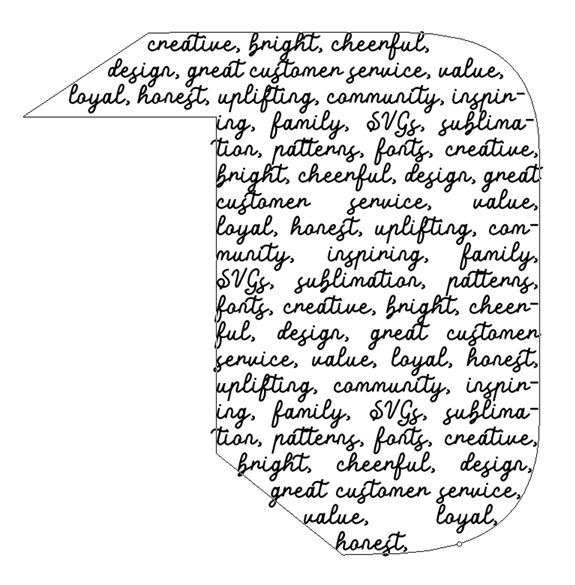 creative, bright, cheerful,
design, great customer service, value,
loyal, honest, uplifting, community, inspir-
ing, family, SVGs, sublima-
tion, patterns, fonts, creative,
bright, cheerful, design, great
customer service, value,
loyal, honest, uplifting, com-
munity, inspiring, family,
SVGs, sublimation, patterns,
fonts, creative, bright, cheer-
ful, design, great customer
service, value, loyal, honest,
uplifting, community, inspir-
ing, family, SVGs, sublima-
tion, patterns, fonts, creative,
bright, cheerful, design,
great customer service,
value, loyal,
honest,